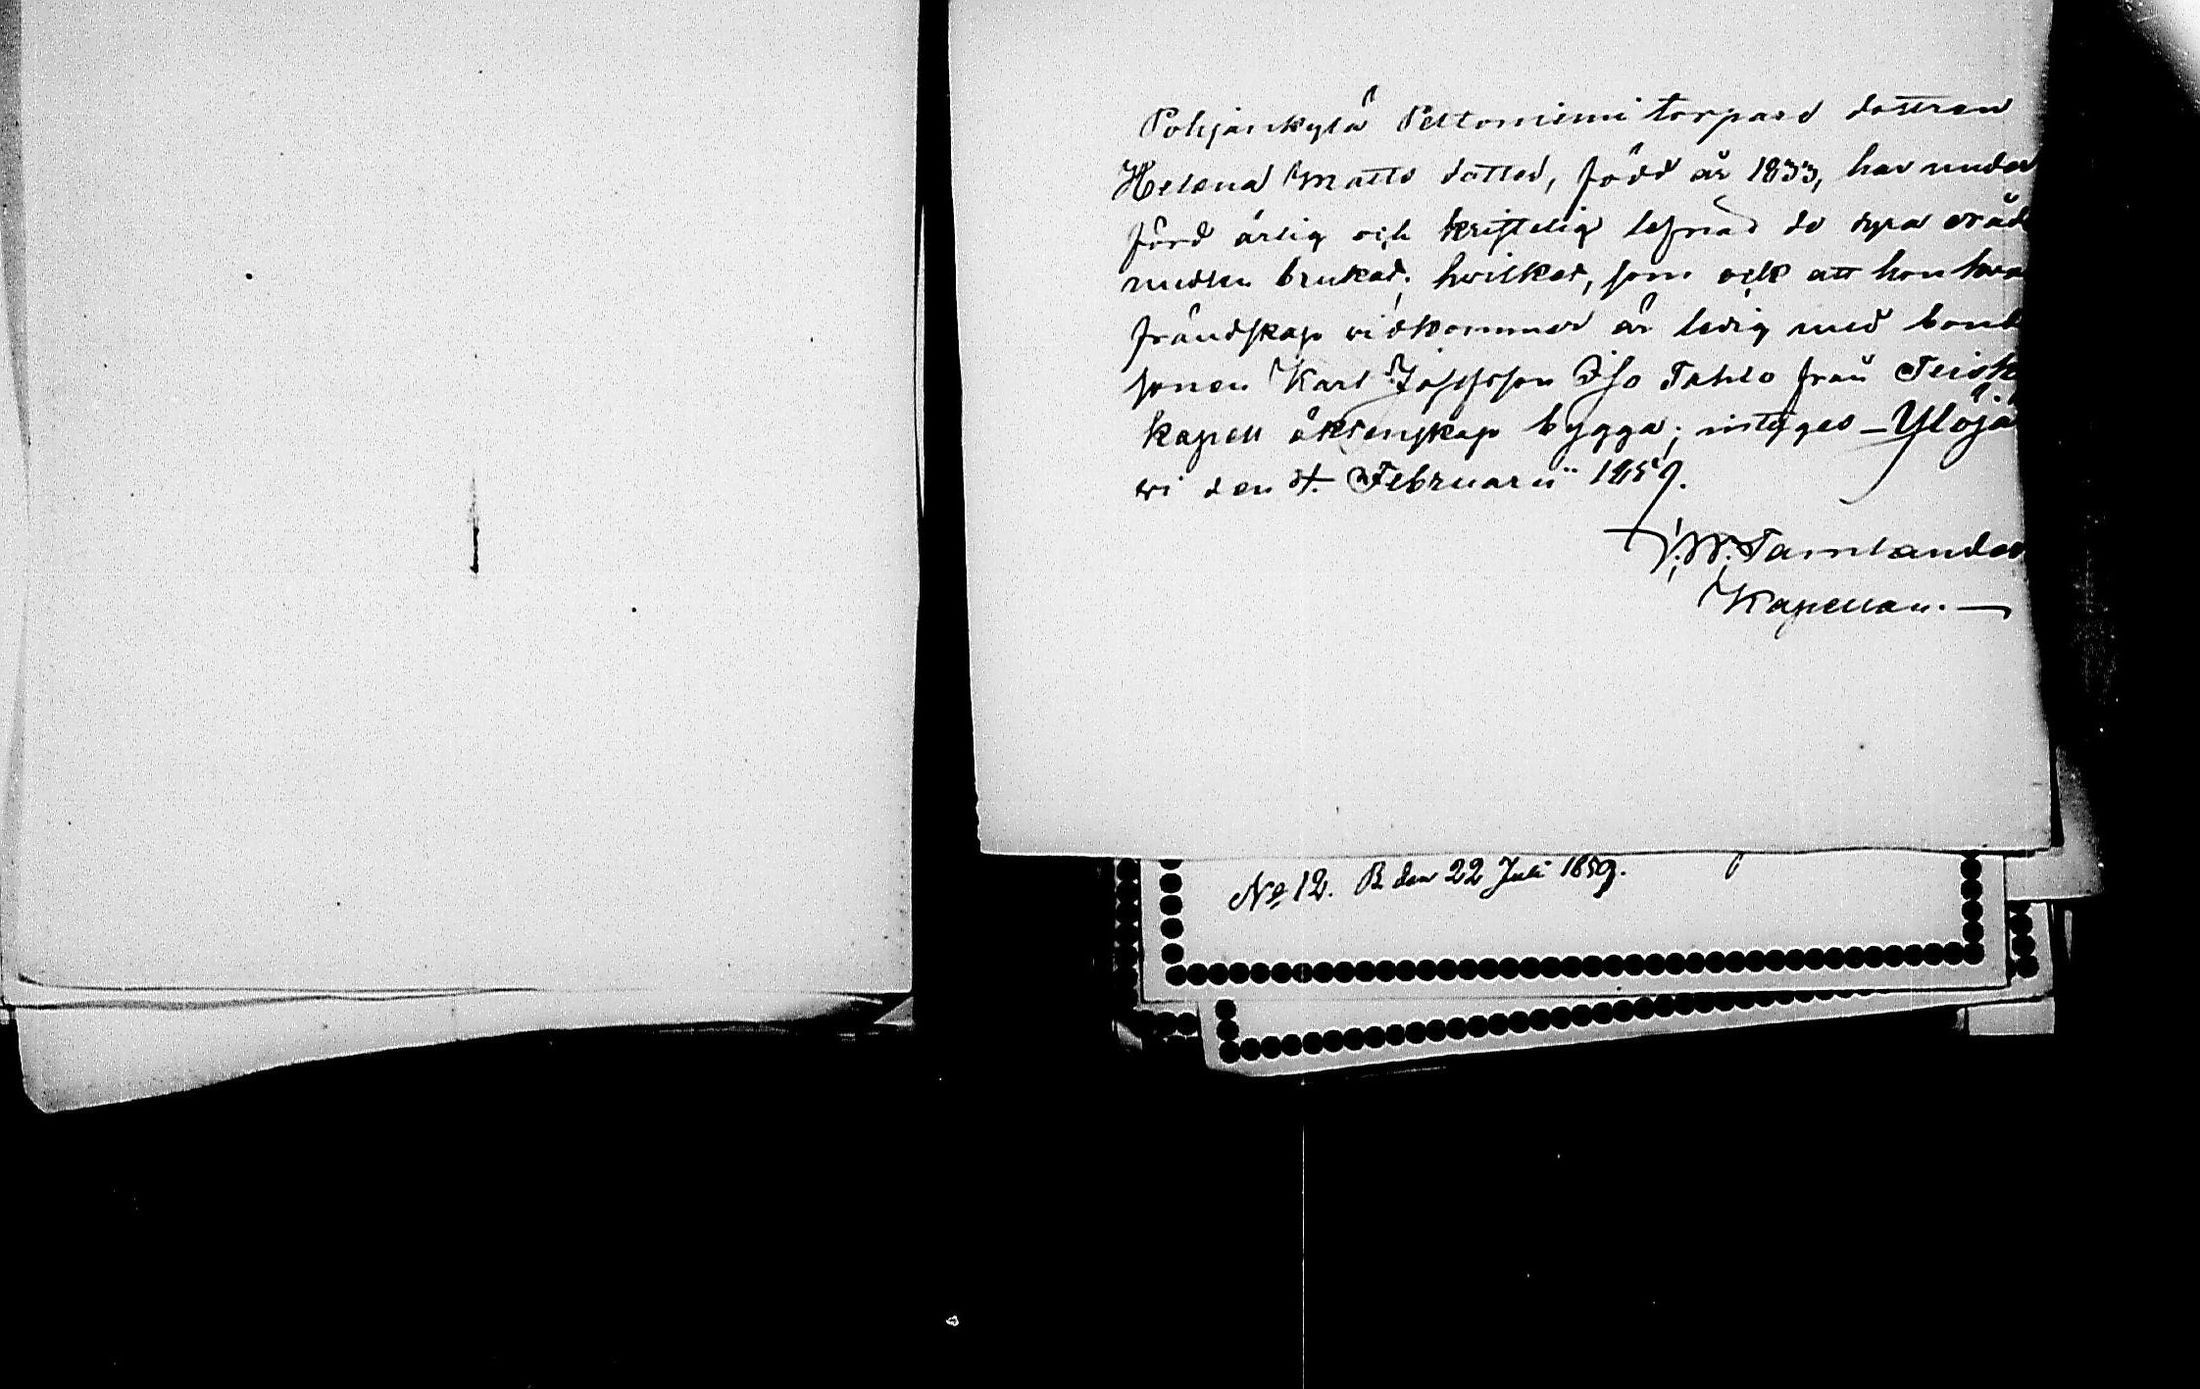 Pohjankylä Peltoniemi torpare dottren
Helena Matts dotter, född år 1833, har under
förd ärlig och kristelig lefnad de dyra nåde
medlen brukat; hvilket, som ock att hon hvad
frändskap vidkommer är ledig med bonde
sonen Karl Josefsson Iso Pahlo från Teisk
kapell äktenskap bygga; intygas – Ylöjä
wi den 4. Februarii 1859.
Tamlander
Kapellan. –
No 12. B den 22 Juli 1859.